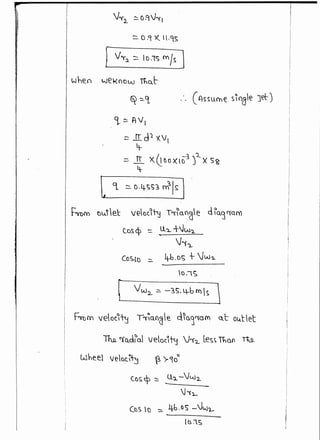 Vr₂ = 0.9Vr₁
= 0.9 × 11.95
Vr₂ = 10.75 m/s
when weknow That
Q = q ∴ (Assume single Jet)
q = AV₁
= π/4 d² × V₁
= π/4 × (100×10⁻³)² × 58
q = 0.4553 m³/s
From outlet velocity Triangle diagram
cosϕ = (u₂ + Vw₂)/Vr₂
Cos10 = (46.05 + Vw₂)/10.75
Vw₂ = -35.46 m/s
From velocity Triangle diagram at outlet
The radial velocity Vr₂ less Than The
wheel velocity β > 90°
Cosϕ = (u₂ - Vw₂)/Vr₂
Cos 10 = (46.05 - Vw₂)/10.75